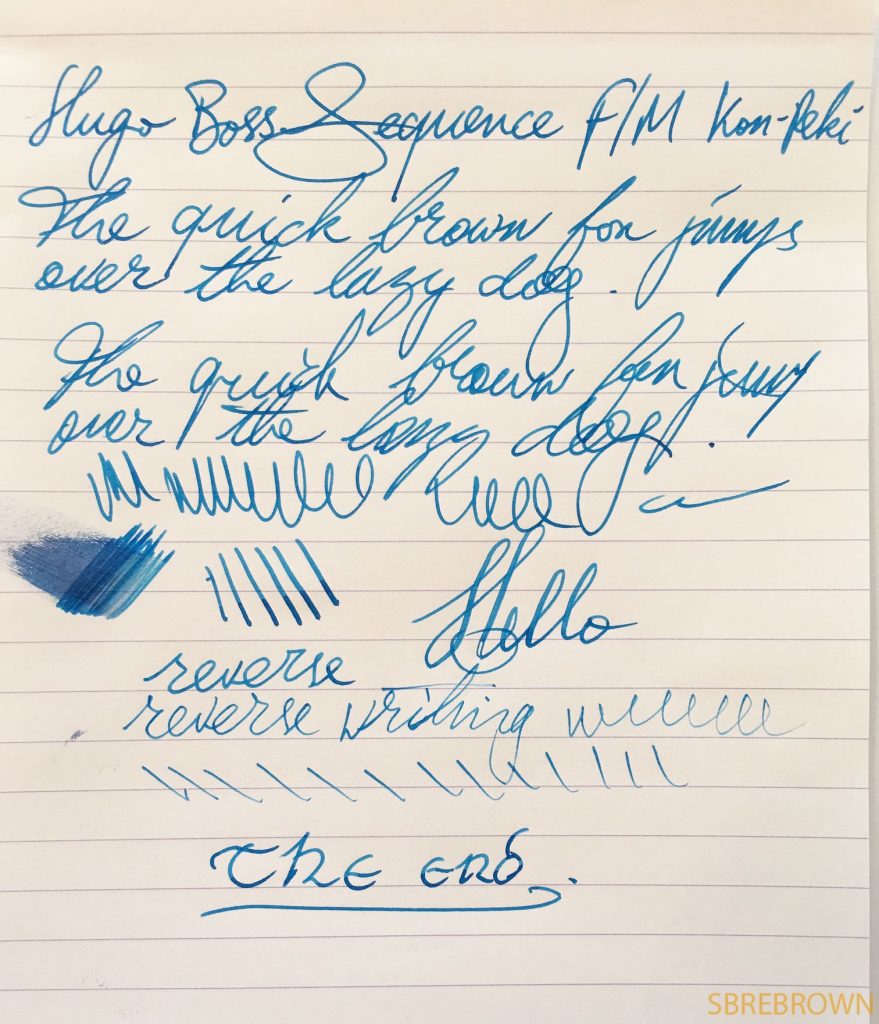 Hugo Boss Sequence F/M Kon-Peki
The quick brown fox jumps
over the lazy dog.
The quick brown fox jump
over the lazy dog.
Hello
reverse
reverse writing
The End.
SBREBROWN